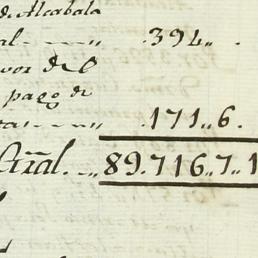 de Alcabala
al. 394,,
vor de
pago de
ta 171,,6.
89.716,,7,,1